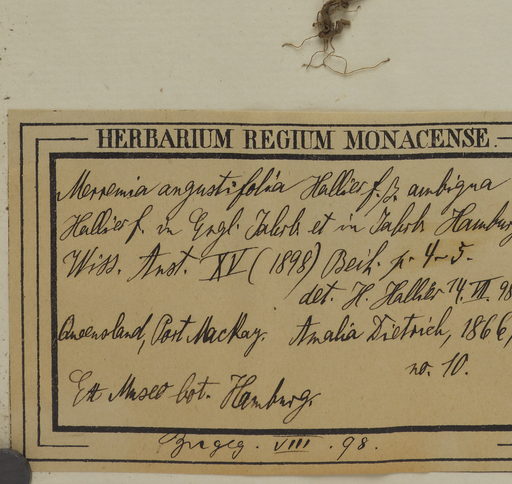 HERBARIUM REGIUM MONACENSE.
Merremia angustifolia Hallier f. β. ambigua
Hallier f. in Engl. Jahrb. et in Jahrb. Hamburg
Wiss. Anst. XV (1898) Beih. p. 4-5.
det. H. Hallier 14. VII. 98
Queensland, Port MacKay. Amalia Dietrich, 1866,
no. 10.
Ex Museo bot. Hamburg.
VIII. 98.